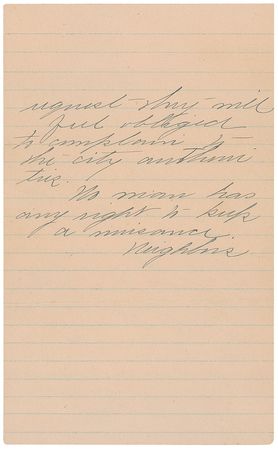 request they will
feel obliged
to complain to
the city authori
ties.
No man has
any right to keep
a nuisance.
Neighbors